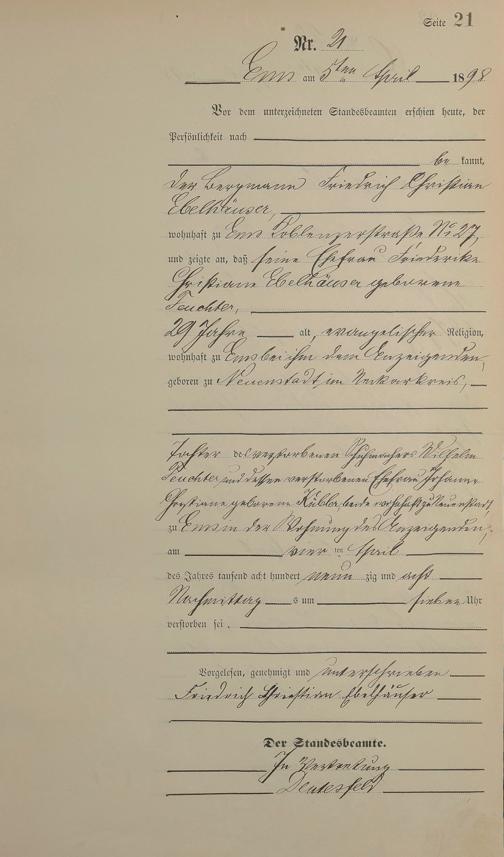 Seite 21
Nr. 21
Ems am 5ten April 1898
Vor dem unterzeichneten Standesbeamten erschien heute, der
Persönlichkeit nach
be kannt,
der Bergmann Friedrich Christian
Ebelhäuser,
wohnhaft zu Ems Koblenzerstraße No 27,
und zeigte an, daß seine Ehefrau Friederike
Christiane Ebelhäuser geborene
Teuchter,
29 Jahre alt, evangelischer Religion,
wohnhaft zu Ems bei ihm dem Anzeigenden,
geboren zu Neuenstadt im Neckarkreis,
Tochter des verstorbenen Schuhmachers Wilhelm
Teuchter und dessen verstorbenen Ehefrau Johanne
Christiane geborene Kübler, beide wohnhaft zu Neuenstadt,
zu Ems in der Wohnung des Anzeigenden,
am vier ten April
des Jahres tausend acht hundert neun zig und acht
Nachmittag s um sieben Uhr
verstorben sei.
Vorgelesen, genehmigt und unterschrieben
Friedrich Christian Ebelhäuser
Der Standesbeamte.
In Vertretung